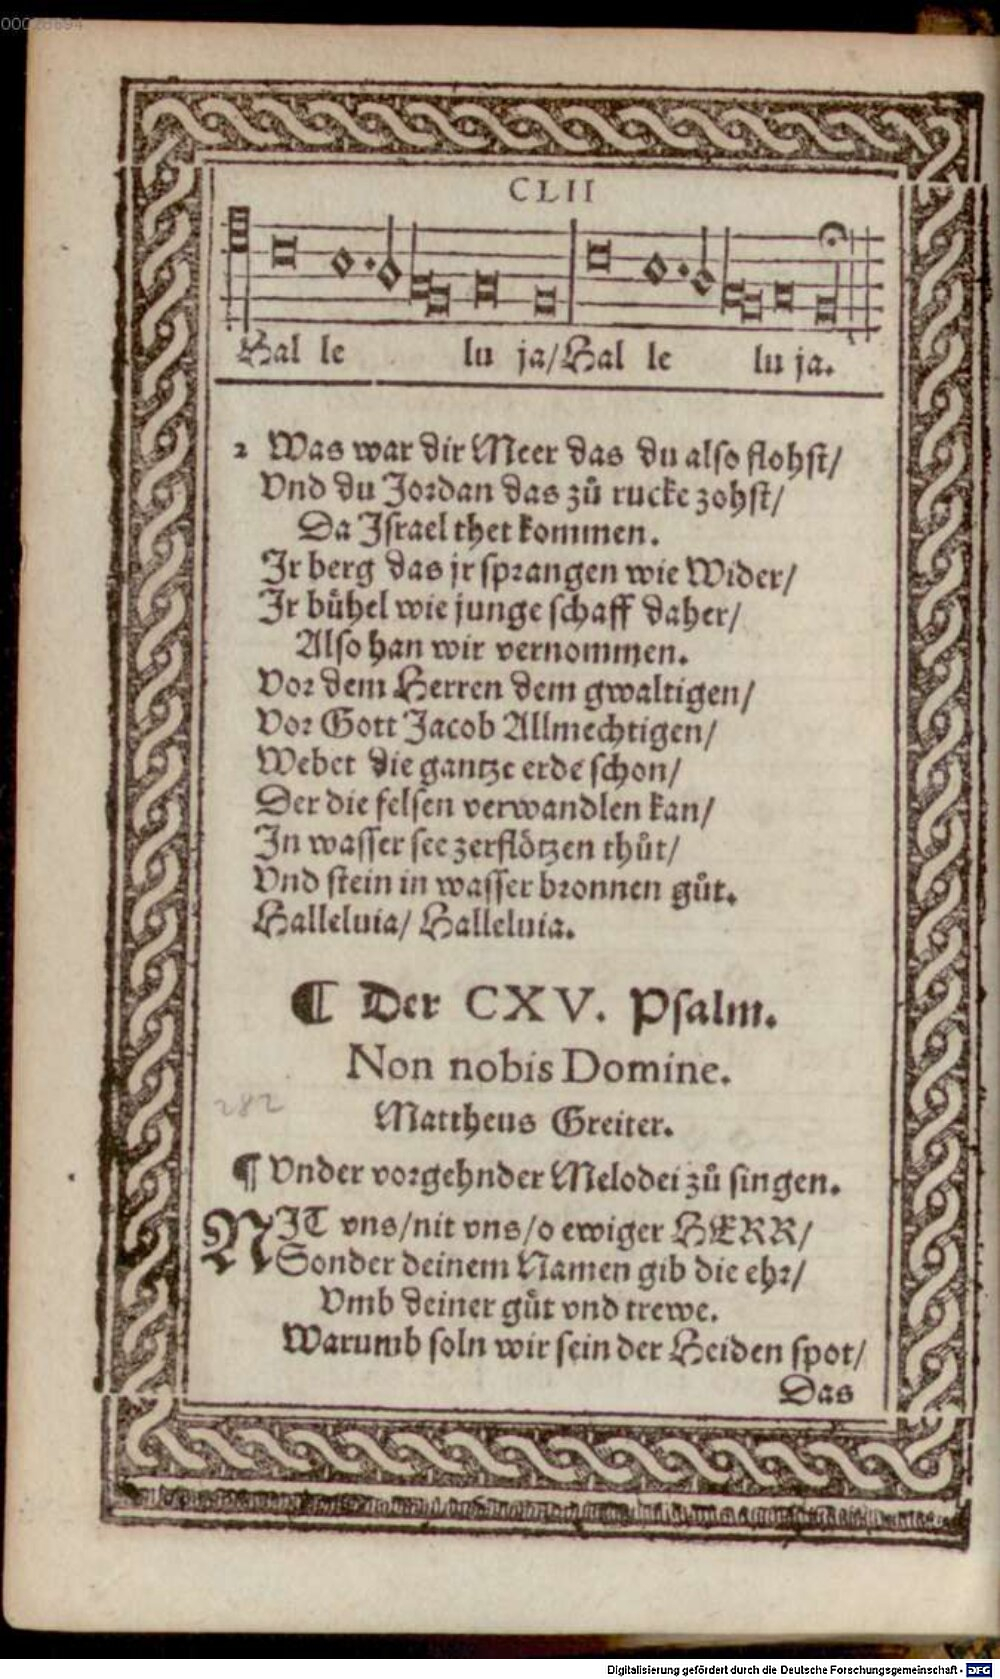 00028694
CLII
Hal le lu ja/Hal le lu ja.
2 Was war dir Meer das du also flohst/
Vnd du Jordan das zů rucke zohst/
Da Israel thet kommen.
Ir berg das jr sprangen wie Wider/
Ir bühel wie junge schaff daher/
Also han wir vernommen.
Vor dem Herren dem gwaltigen/
Vor Gott Jacob Allmechtigen/
Webet die gantze erde schon/
Der die felsen verwandlen kan/
In wasser see zerflötzen thůt/
Vnd stein in wasser bronnen gůt.
Halleluia/ Halleluia.
¶ Der CXV. Psalm.
Non nobis Domine.
282
Mattheus Greiter.
¶ Vnder vorgehnder Melodei zů singen.
NIT vns/nit vns/o ewiger HERR/
Sonder deinem Namen gib die ehr/
Vmb deiner gůt vnd trewe.
Warumb soln wir sein der Heiden spot/
Das
Digitalisierung gefördert durch die Deutsche Forschungsgemeinschaft - DFG